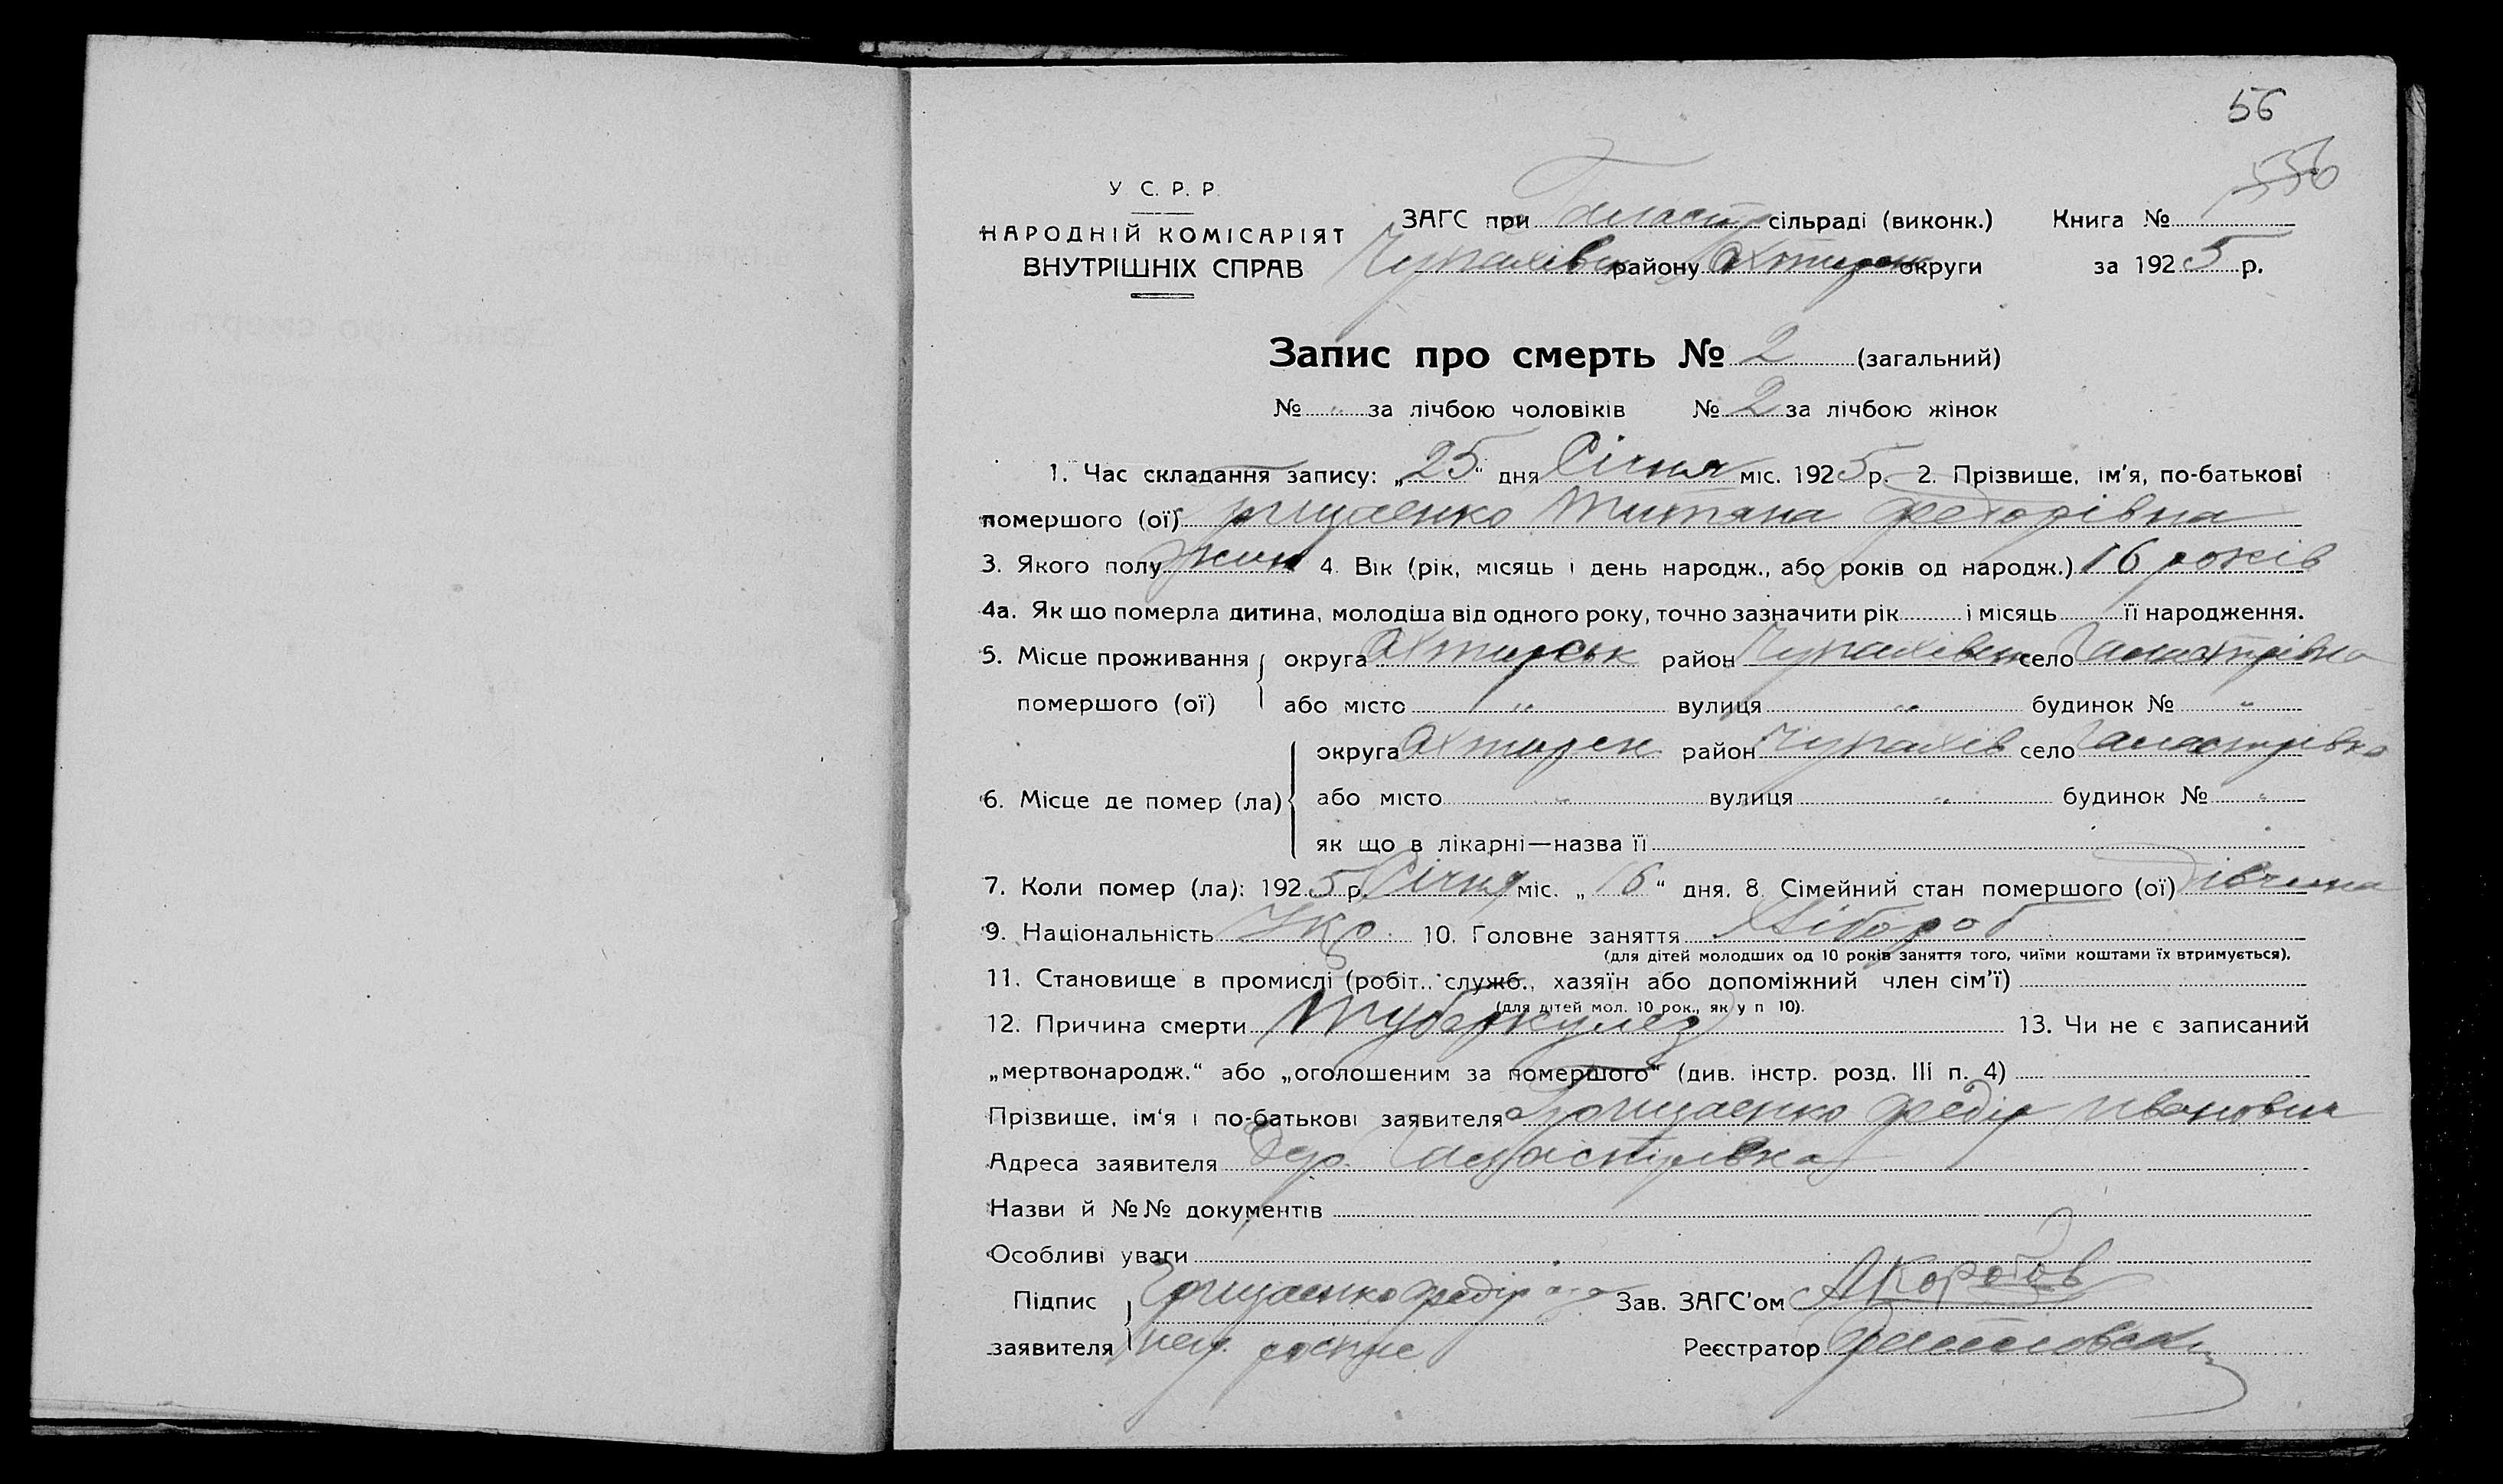 56
556
У С. Р. Р.
НАРОДНІЙ КОМІСАРІЯТ
ВНУТРІШНІХ СПРАВ
ЗАГС при сільраді (виконк.) Книга №
Чупахівськ району Охтирськ округи за 1925 р.
Запис про смерть № 2 (загальний)
№ " за лічбою чоловіків № 2 за лічбою жінок
1. Час складання запису: „25" дня Січня міс. 1925 р. 2. Прізвище, ім'я, по-батькові
помершого (ої) Грищаенко Титяна Федорівна
3. Якого полу жін 4. Вік (рік, місяць і день народж., або років од народж.) 16 років
4а. Як що померла дитина, молодіша від одного року, точно зазначити рік і місяць її народження.
5. Місце проживання округа Охтирськ район Чупахівськ село
помершого (ої) або місто " вулиця " будинок № "
округа Охтирск район Чупахів село
6. Місце де помер (ла) або місто " вулиця " будинок № "
як що в лікарні—назва її
7. Коли помер (ла): 1925 р. Січня міс. „16" дня. 8. Сімейний стан помершого (ої) дівчина
9. Національність Укр. 10. Головне заняття Хлібороб
(для дітей молодших од 10 років заняття того, чиїми коштами їх втримується).
11. Становище в промислі (робіт., служб., хазяїн або допоміжний член сім'ї)
(для дітей мол. 10 рок., як у п 10).
12. Причина смерти Туберкулез 13. Чи не є записаний
„мертвонародж." або „оголошеним за помершого" (див. інстр. розд. III п. 4)
Прізвище, ім'я і по-батькові заявителя Грищаенко Федір Иванович
Адреса заявителя
Назви й №№ документів
Особливі уваги
Підпис Грищаенко Федір Зав. ЗАГС'ом АКоротов
заявителя Реєстратор